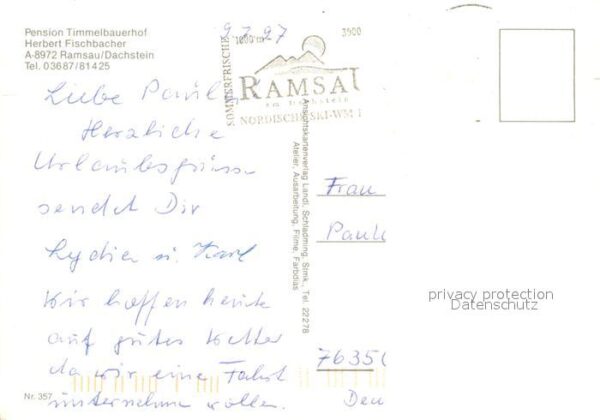 Pension Timmelbauerhof
Herbert Fischbacher
A-8972 Ramsau/Dachstein
Tel. 03687/81425
9.2.97
SOMMERFRISCHE
1000 m
3000
RAMSAU
am Dachstein
NORDISCHE SKI-WM 1
Liebe Paul
Herzliche
Urlaubsgrüsse
sendet Dir
Lydia u. Karl
Wir hoffen heute
auf gutes Wetter
da wir eine Fahrt
unternehmen wollen.
Nr. 357
Ansichtskartenverlag Landl, Schladming, Stmk., Tel. 22278
Atelier, Ausarbeitung, Filme, Farbdias
Frau
Paul
7635
Deu
privacy protection
Datenschutz